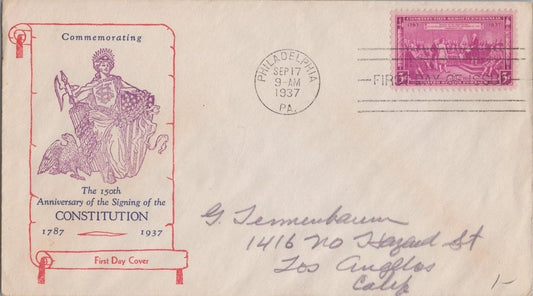 Commemorating
The 150th
Anniversary of the Signing of the
CONSTITUTION
1787 1937
First Day Cover
PHILADELPHIA
SEP 17
9-AM
1937
PA.
1787 1937
3¢ 3¢
FIRST DAY OF ISSUE
G. Tennenbaum
1416 No Hazard St
Los Angeles
Calif
1-